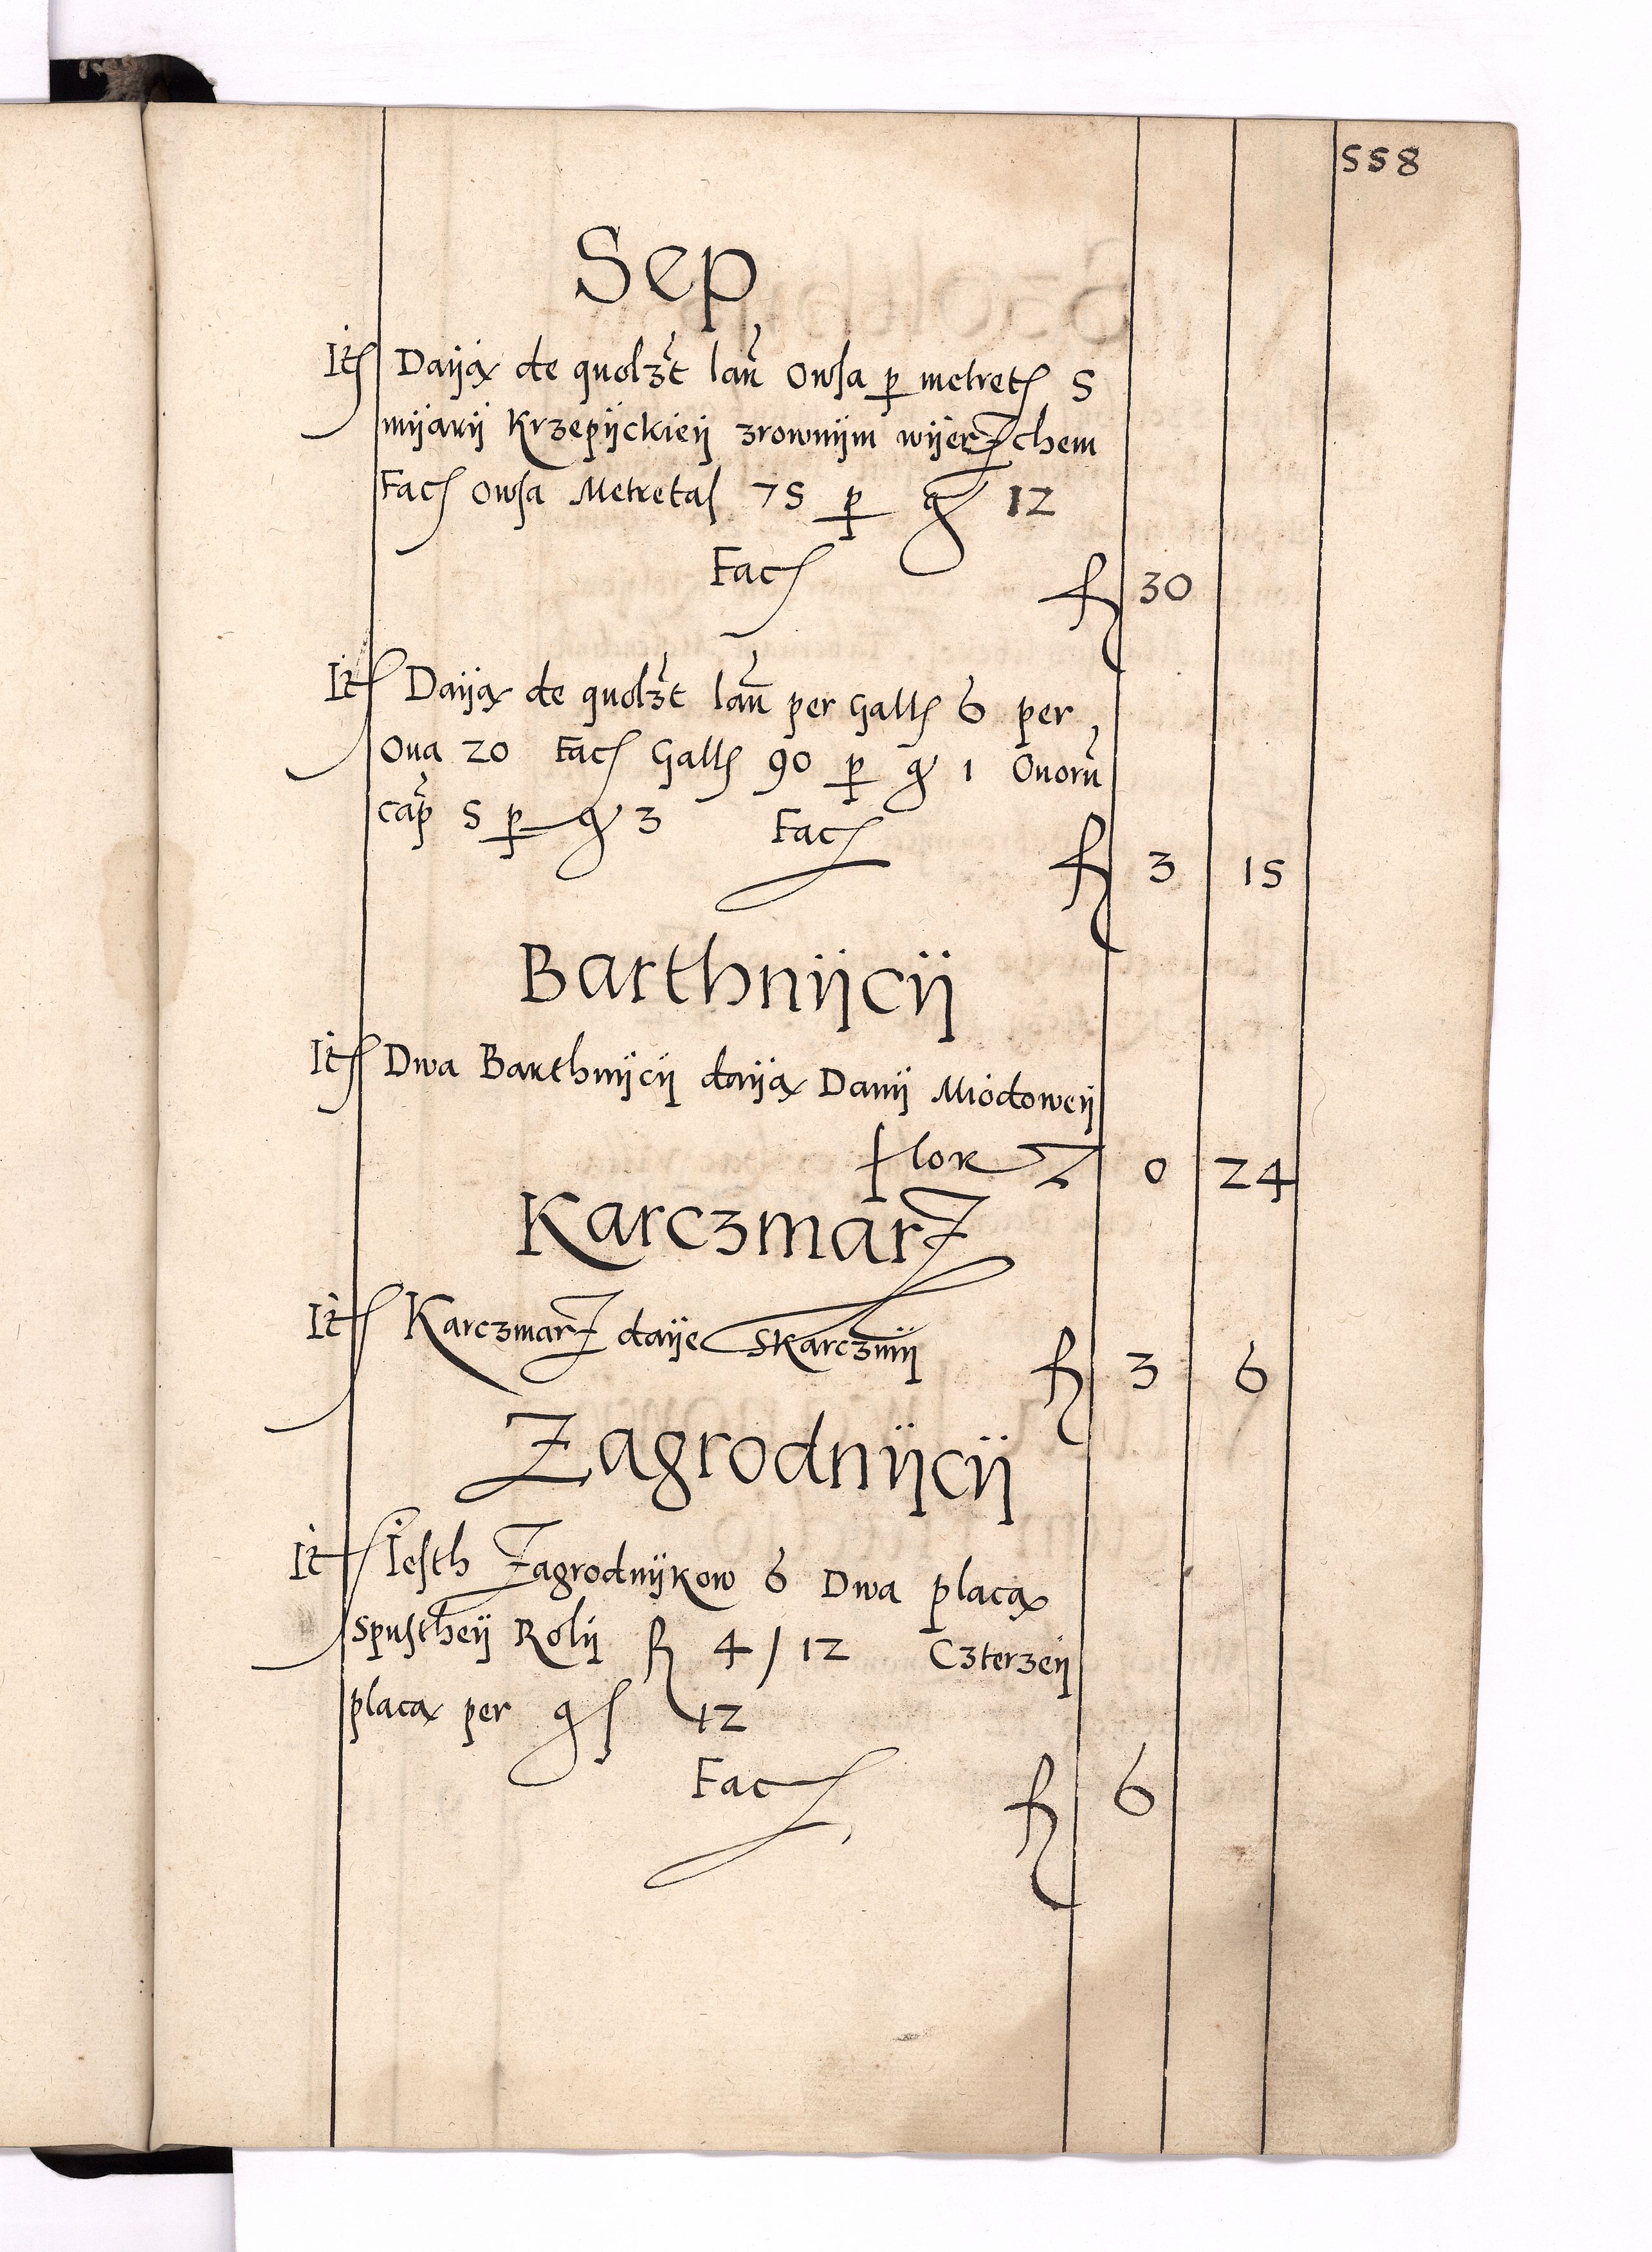 558
Sep
It Daÿą de quolzt lan̄ Owsa p metret 5
mÿarÿ Krzepÿckieÿ zrownÿm wÿerzchem
Fac Owsa Metretas 75 p g 12
Fac fl 30
It Daÿą de quolzt lan̄ per Gall 6 per
Oua 20 Fac Gall 90 p g 1 Ouorū
cap 5 p g 3 Fac
fl 3 15
Barthnÿcÿ
It Dwa Barthnÿcÿ daÿą Danÿ Miodoweÿ
flor 0 24
Karczmarz
It Karczmarz daÿe Skarczmÿ fl 3 6
Zagrodnÿcÿ
It Iesth Zagrodnÿkow 6 Dwa placą
spustheÿ Rolÿ fl 4 / 12 Czterzeÿ
placą per g 12
Fac fl 6